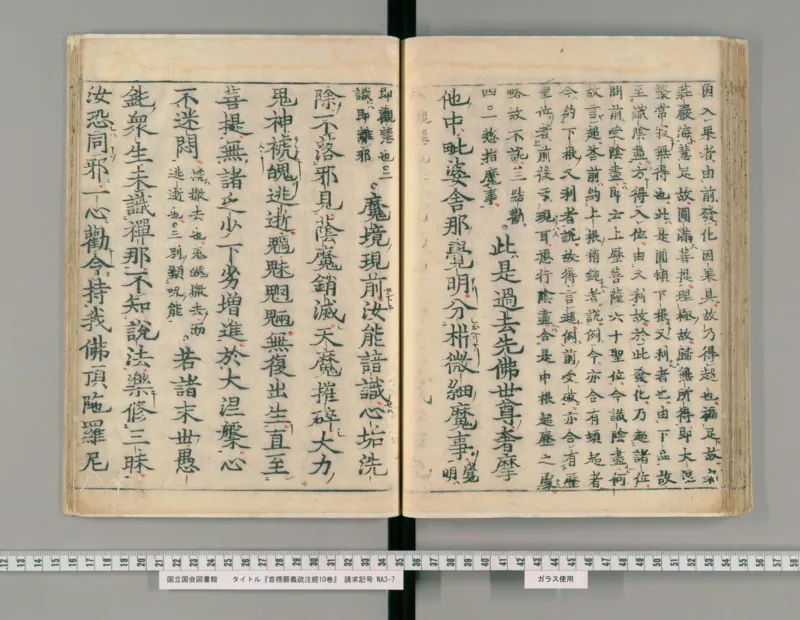 因入界者由前發化因果具故乃得超也福足故
莊嚴海慧足故圓滿菩提理極故歸無所得即大涅
槃常寂無得也此是圓頓下根又利者也由下品故
至識陰盡方得入位由又利故於此發化乃超諸位
問前受陰盡即云上歷菩薩六十聖位今識陰盡何
故言超答前約上根稍鈍者說例今亦合有頓超者
今約下根又利者說故得言超例前受彼亦合有歷
聖位者前後互現耳想行陰盡合是中根超歷之處
略故不說三結勸
四○一總指魔事
此是過去先佛世尊奢摩
他中毗婆舍那覺明分析微細魔事
明
即觀慧也三
識即離邪
魔境現前汝能諳識心垢洗
除不落邪見陰魔銷滅天魔摧碎大力
鬼神褫魄逃逝魑魅魍魎無復出生直至
菩提無諸乏少下劣增進於大涅槃心
不迷悶
逃逝也三別顯呪能
若諸末世愚
鈍衆生未識禪那不知說法樂修三昧
汝恐同邪一心勸令持我佛頂陁羅尼
国立国会図書館 タイトル『首楞嚴義疏注經10巻』 請求記号 WA3-7
ガラス使用